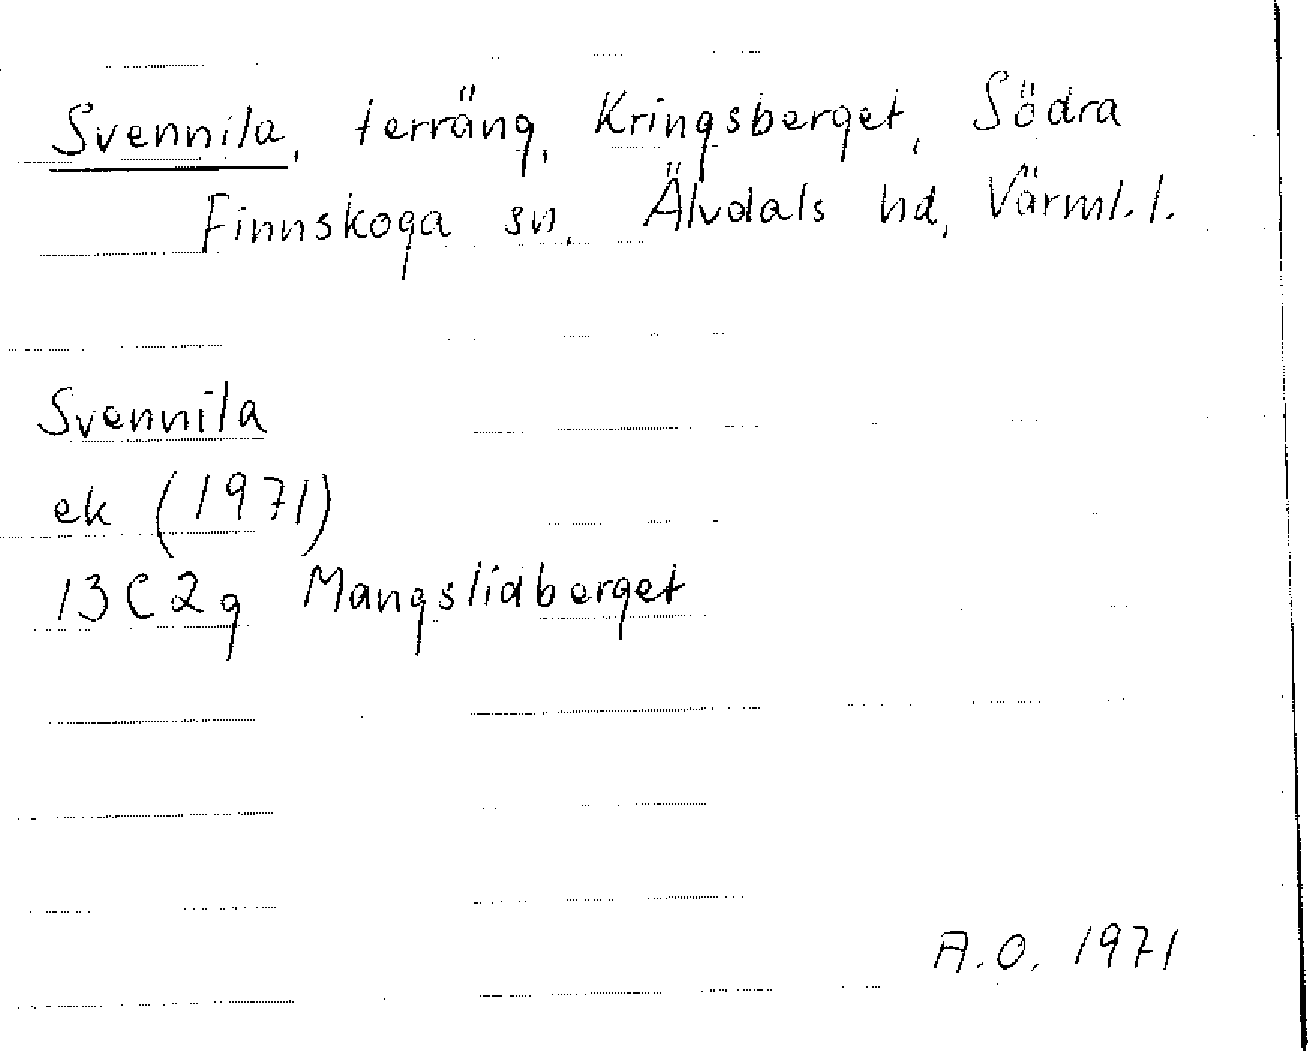 Svennila, terräng, Kringsberget, Södra
Finnskoga sn, Älvdals hd, Värml. l.
Svennila
ek (1971)
13C2g Mangslidberget
A.O. 1971